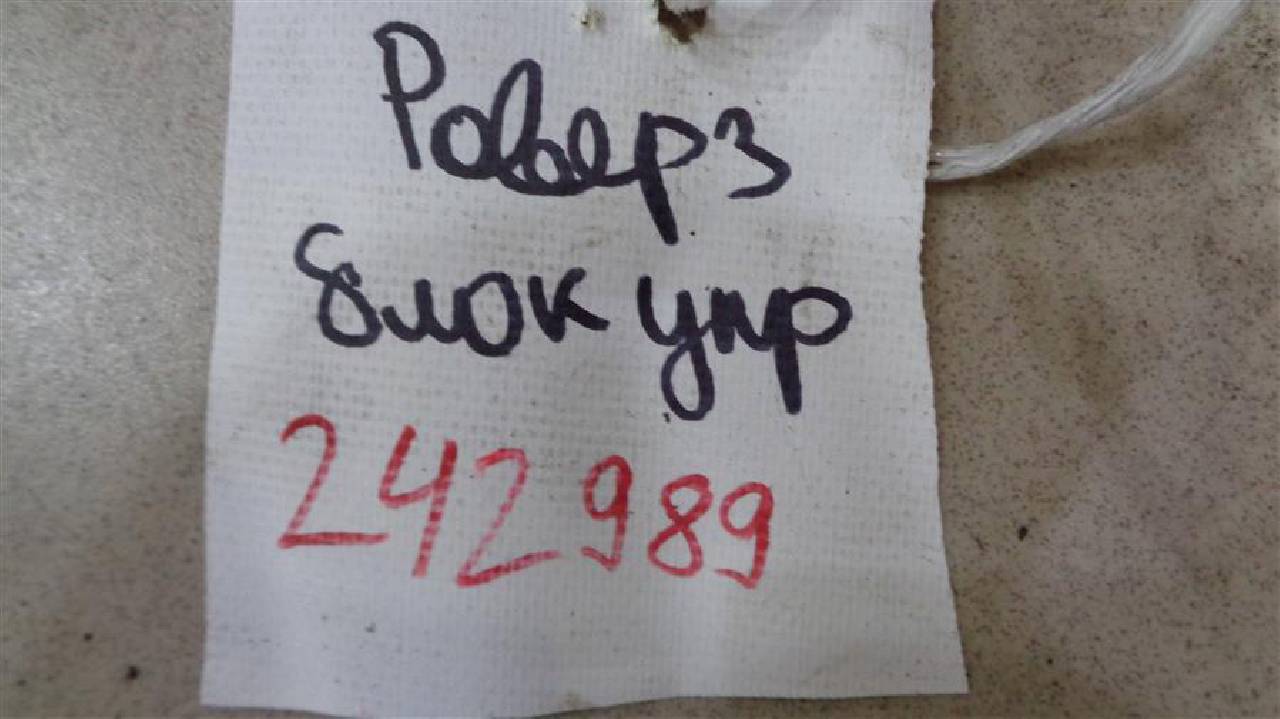 Ровер 3
блок упр
242989